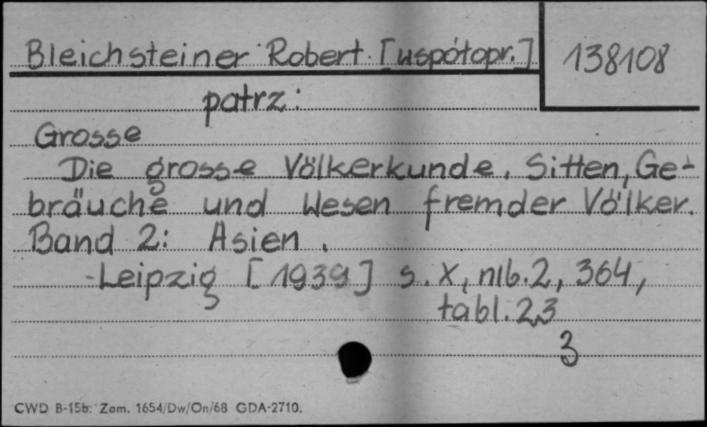 Bleichsteiner Robert. [współopr.] 138108
patrz:
Grosse
Die grosse Völkerkunde. Sitten, Ge-
bräuche und Wesen fremder Völker.
Band 2: Asien.
-Leipzig [1939] s. X, nlb. 2, 364,
tabl. 23
3
CWD B-15b. Zam. 1654/Dw/On/68 GDA-2710.